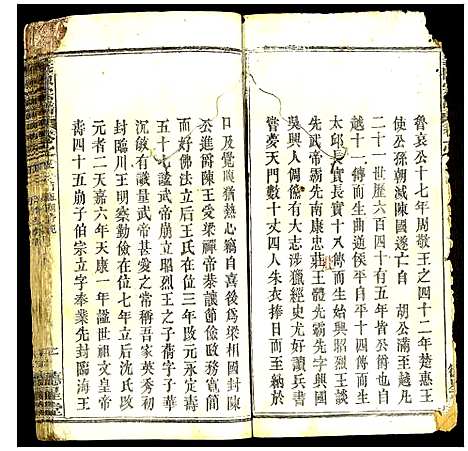 魯哀公十七年周敬王之四十二年楚惠王
使公孫朝滅陳國遂亡自 胡公滿至越凡
二十一世歷六百四十有五年皆公爵也自
越十一傳而生始遇侯平十四傳而生
太邱長實長實十八傳而生始興昭烈王談
先武帝霸先南康忠壯王體先霸先字興國
吳興人倜儻有大志涉獵經史尤好讀兵書
嘗夢天門數十丈四人朱衣捧日而至納於
口及覺腹猶熱心竊自喜後為梁相國封陳
公進爵陳王受梁禪帝恭讓節儉政務寬簡
而好佛法立后王氏在位三年改元永定壽
五十七謚武帝崩立昭烈王之子蒨字子華
沉敏有識量武帝甚愛之常稱吾家英秀初
封臨川王明察勤儉在位七年立后沈氏改
元者二天嘉六年天康一年謚世祖文皇帝
壽四十五崩子伯宗立字奉業先封臨海王
德星堂